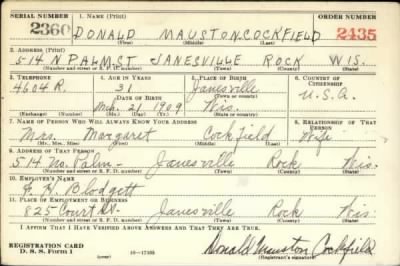 SERIAL NUMBER 1. NAME (Print) ORDER NUMBER
2360 DONALD MAUSTON COCKFIELD 2435
(First) (Middle) (Last)
2. ADDRESS (Print)
514 N PALM ST JANESVILLE ROCK WIS.
(Number and street or R. F. D. number) (Town) (County) (State)
3. TELEPHONE 4. AGE IN YEARS 5. PLACE OF BIRTH 6. COUNTRY OF CITIZENSHIP
4604 R. 31 Janesville
DATE OF BIRTH (Town or county)
Mch. 21 1909 Wis. U.S.A.
(Exchange) (Number) (Mo.) (Day) (Yr.) (State or country)
7. NAME OF PERSON WHO WILL ALWAYS KNOW YOUR ADDRESS 8. RELATIONSHIP OF THAT PERSON
Mrs. Margaret Cockfield Wife
(Mr., Mrs., Miss) (First) (Middle) (Last)
9. ADDRESS OF THAT PERSON
514 No. Palm - Janesville Rock Wis.
(Number and street or R. F. D. number) (Town) (County) (State)
10. EMPLOYER'S NAME
F. H. Blodgett
11. PLACE OF EMPLOYMENT OR BUSINESS
825 Court St. Janesville Rock Wis.
(Number and street or R. F. D. number) (Town) (County) (State)
I AFFIRM THAT I HAVE VERIFIED ABOVE ANSWERS AND THAT THEY ARE TRUE.
REGISTRATION CARD Donald Mauston Cockfield
D. S. S. Form 1 (over) 16—17105 (Registrant's signature)